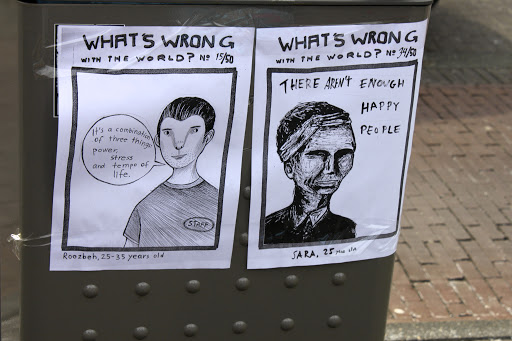 WHAT'S WRONG
WITH THE WORLD? No 15/50
It's a combination
of three things
power,
stress
and tempo of
life.
STAFF
Roozbeh, 25-35 years old
WHAT'S WRONG
WITH THE WORLD? No 34/50
THERE AREN'T ENOUGH
HAPPY
PEOPLE
SARA, 25